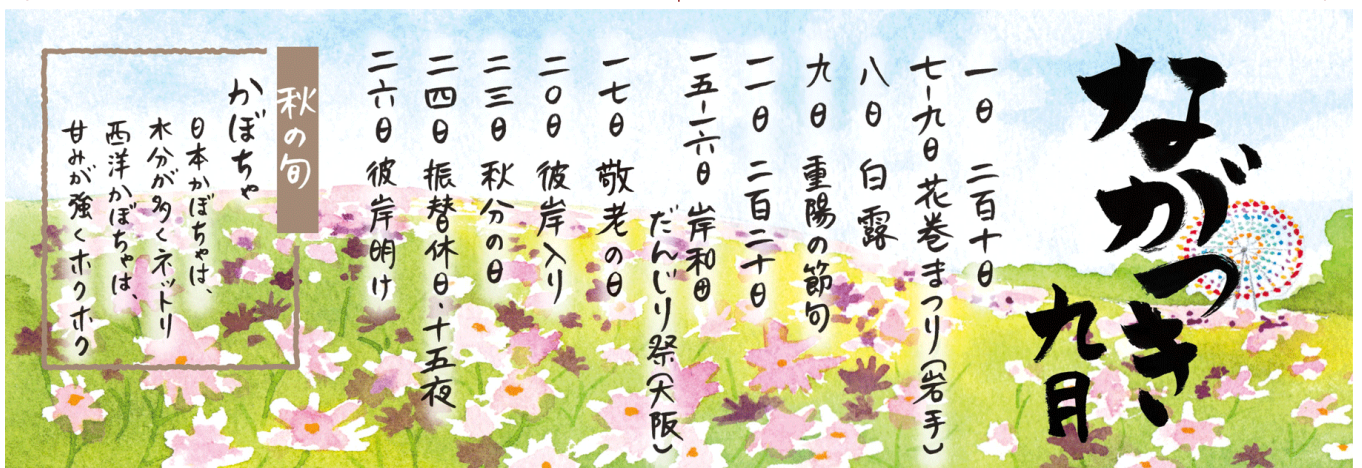 ながつき
九月
一日 二百十日
七-九日 花巻まつり(岩手)
八日 白露
九日 重陽の節句
一一日 二百二十日
一五-一六日 岸和田
だんじり祭(大阪)
一七日 敬老の日
二〇日 彼岸入り
二三日 秋分の日
二四日 振替休日・十五夜
二六日 彼岸明け
秋の旬
かぼちゃ
日本かぼちゃは、
水分が多くネットリ
西洋かぼちゃは、
甘みが強くホクホク